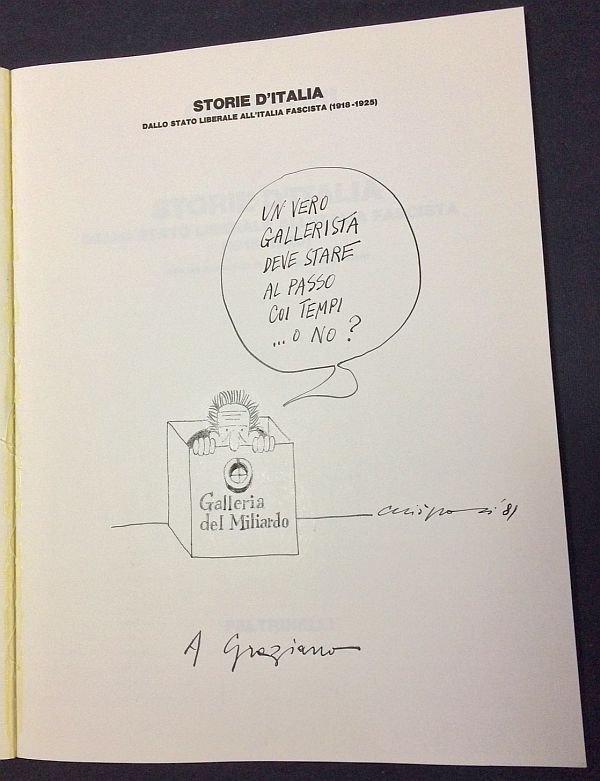 STORIE D'ITALIA
DALLO STATO LIBERALE ALL'ITALIA FASCISTA (1918-1925)
UN VERO
GALLERISTA
DEVE STARE
AL PASSO
COI TEMPI
... O NO?
Galleria
del Miliardo
'81
A Graziano
FELTRINELLI